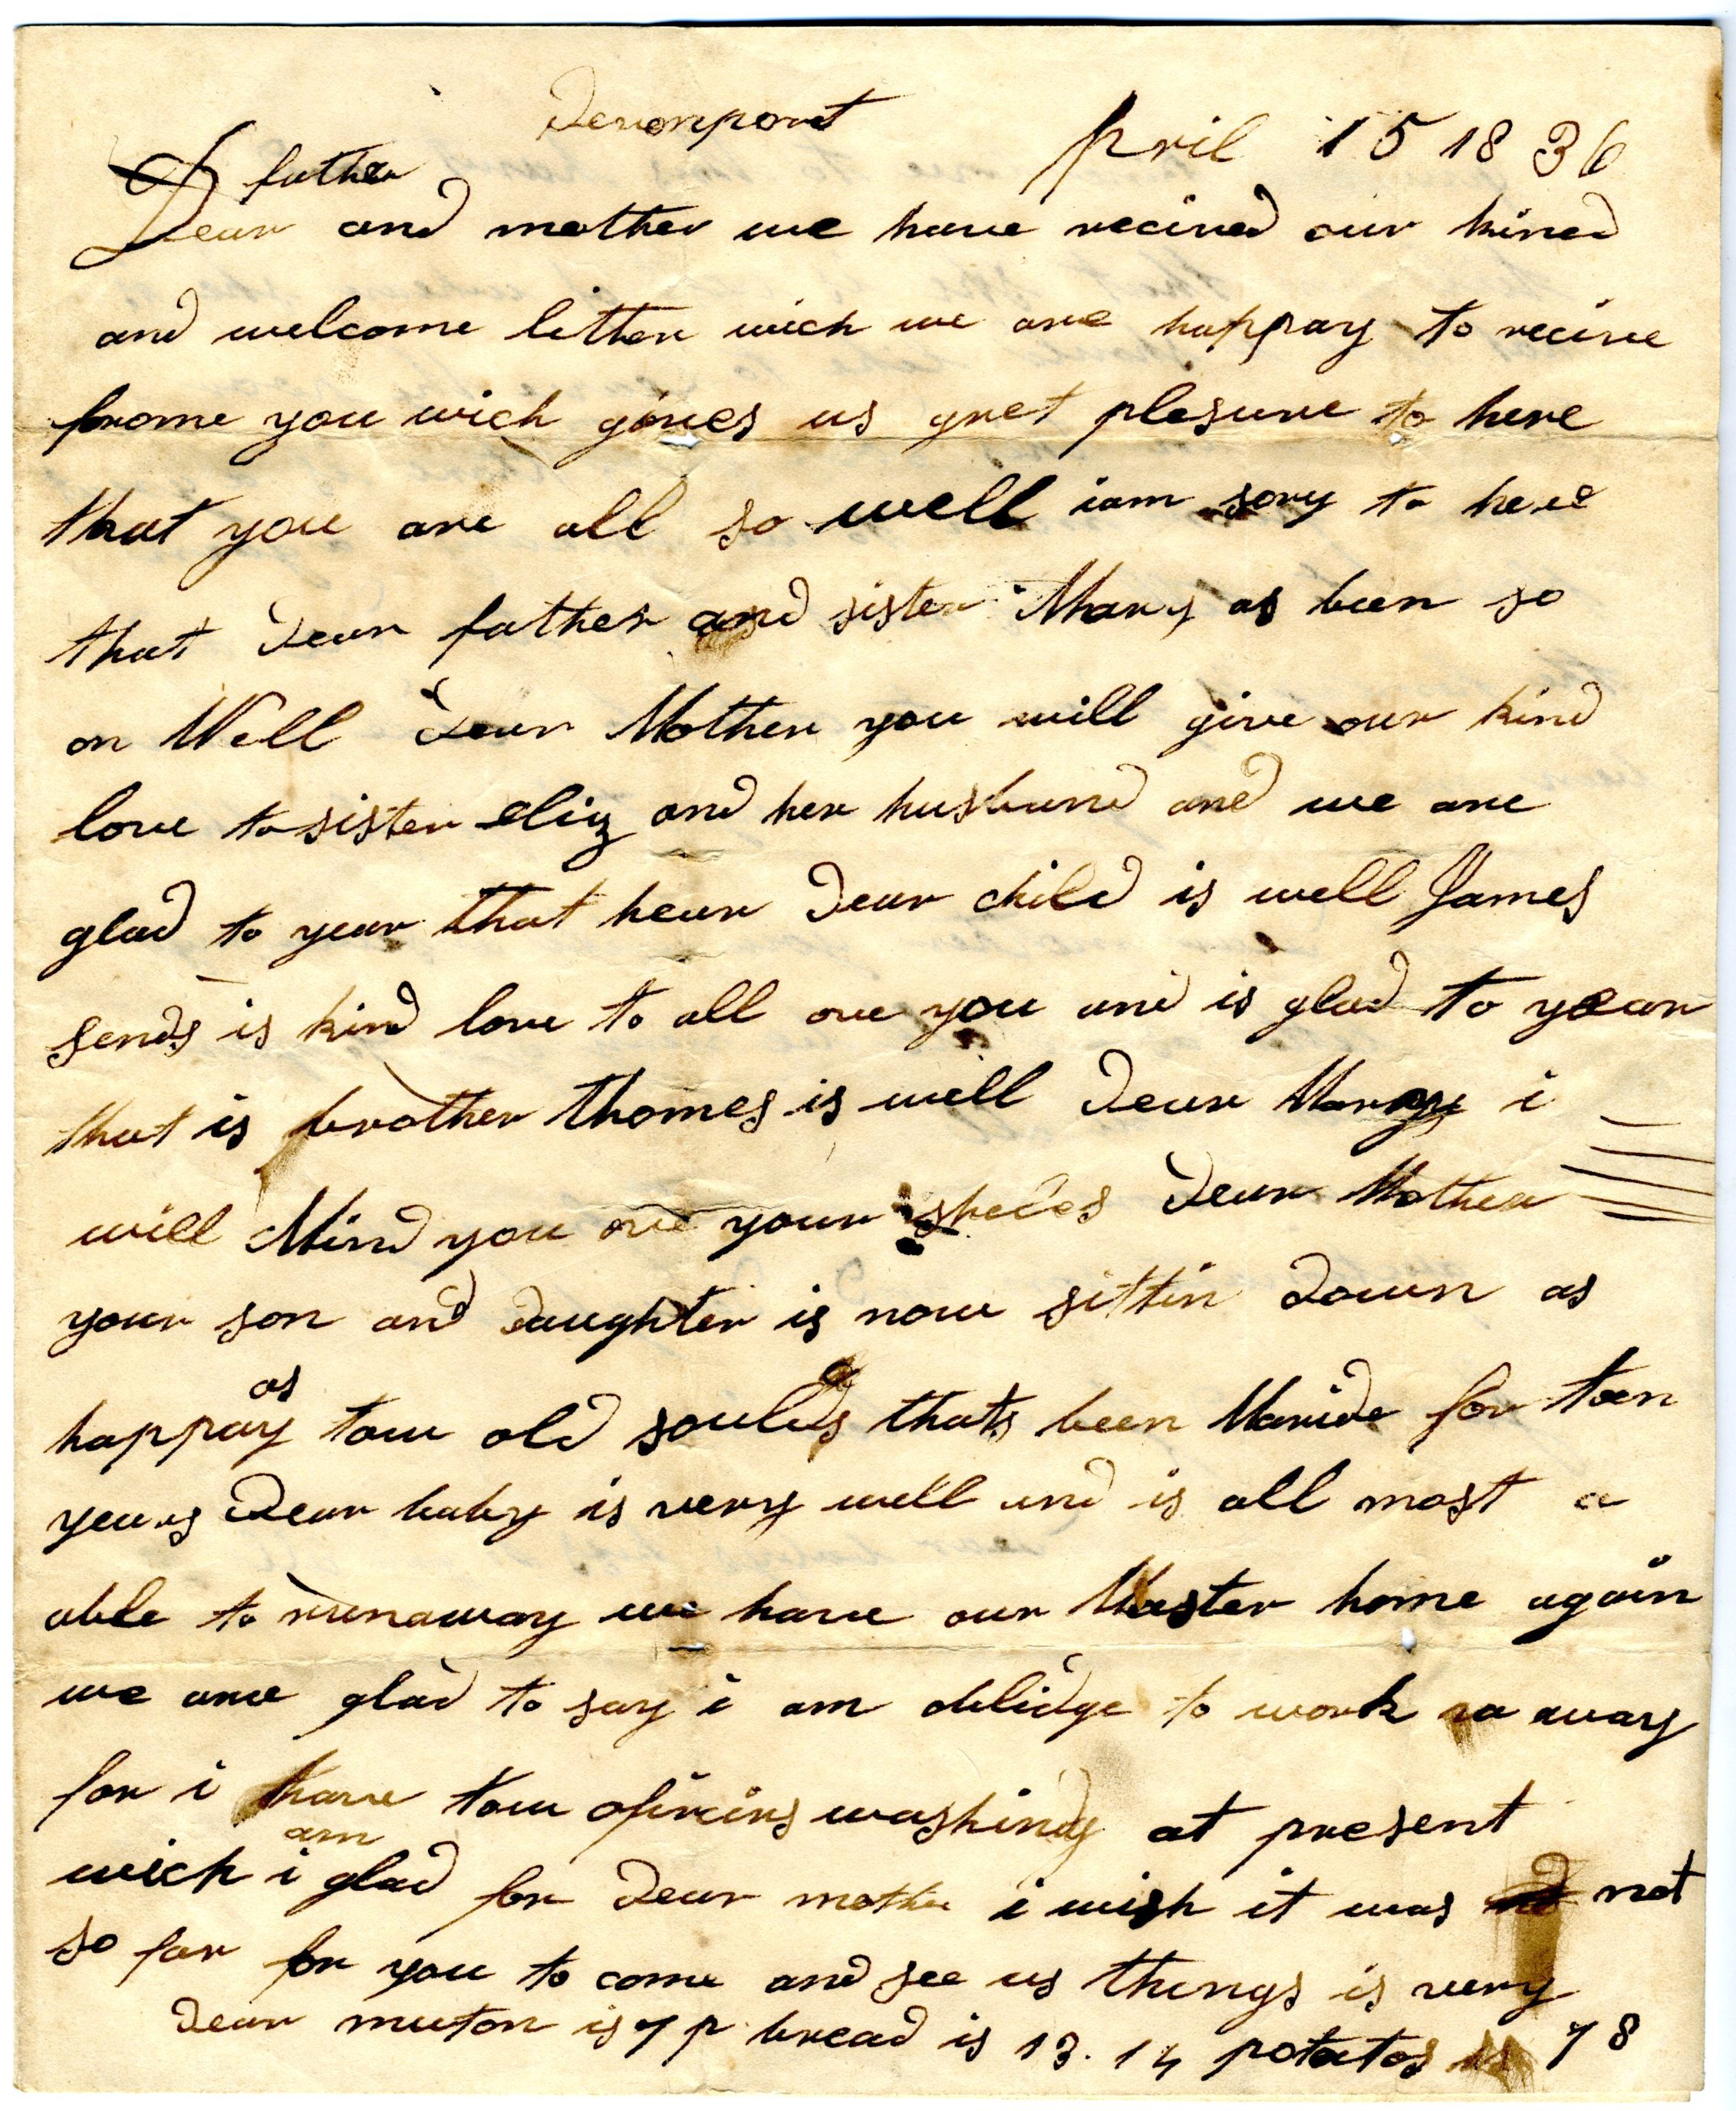 Devonport April 15 1836
father
Dear and mother we have recived our kined
and welcome litter wich we are happay to recive
frome you wich gives us gret plesure to here
that you are all so well iam sory to here
that Dear father and sister Mary as been so
on Well Dear Mother you will give our kind
love to sister eliz and her husband and we are
glad to year that hear Dear child is well James
sends is kind love to all ove you and is glad to year
that is brother thomes is well Dear Marey i
will Mind you ove your Dear Mother
your son and Daughter is now sittin Down as
happay as tow old souls thats been Maride for ten
years Dear baby is very well and is all most a
able to runaway we have our Master home again
we are glad to say i am oblidge to work away
for i have tow oficeirs washindg at present
wich i am glad for Dear mother i wish it was not
so far for you to come and see us things is very
Dear muton is 7 p bread is 13. 14 potatos is 7 8